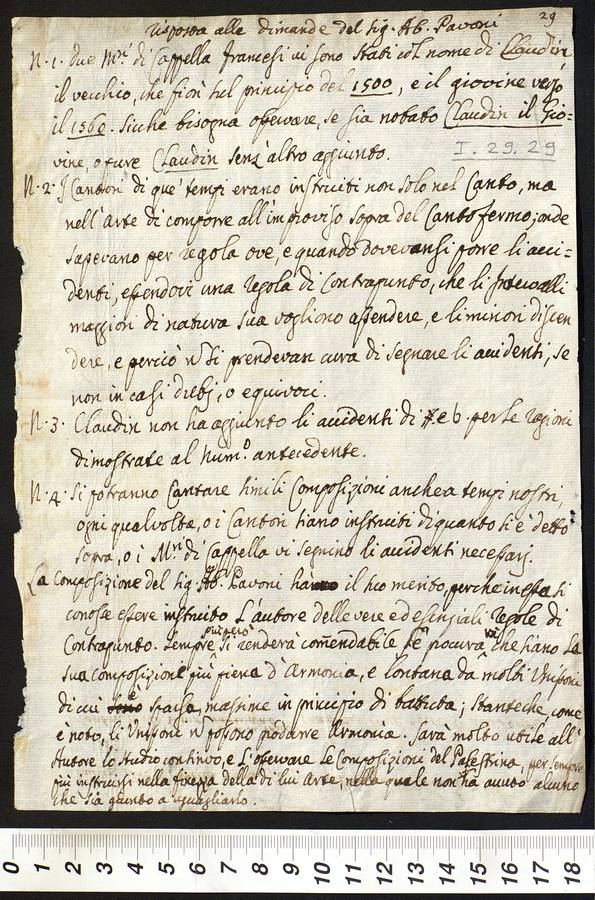 29
Risposta alle dimande del Sig. Ab. Pavoni
N. 1. Due M.ri di Cappella francesi vi sono stati col nome di Claudin
il vecchio, che fiorì nel principio del 1500, e il giovine verso
il 1560. Sicche bisogna osservare, se sia notato Claudin il Gio=
vine, o pure Claudin senz'altro aggiunto.
I. 29. 29
N. 2. I Cantori di que' tempi erano instruiti non solo nel Canto, ma
nell'Arte di comporre all'improviso sopra del Canto fermo; onde
sapevano per regola ove, e quando dovevansi porre li acci=
denti, essendovi una regola di Contrapunto, che li Intervalli
maggiori di natura sua vogliono ascendere, e li minori discen
dere, e perciò ñ si prendevan cura di segnare li accidenti, se
non in casi dubj, o equivoci.
N. 3. Claudin non ha aggiunto li accidenti di # e b per le ragioni
dimostrate al Num.o antecedente.
N. 4. Si potranno Cantare simili Composizioni anche a tempi nostri,
ogni qualvolta, o i Cantori siano instruiti di quanto si è detto
sopra, o i M.ri di Cappella vi segnino li accidenti necessarj.
La Composizione del Sig. Ab. Pavoni ha il suo merito, perche in essa si
conosce essere instruito L'autore delle vere ed essenziali regole di
Contrapunto. Sempre più però si renderà com̃endabile se procurerà, che siano La
sua Composizione più piena d'Armonia, e lontana da molti Unissoni
di cui è sparsa, massime in principio di battuta; stanteche, come
è noto, li Unissoni ñ possono produrre Armonia. Sarà molto utile all'
Autore lo studio continuo, e L'osservare le Composizioni del Palestrina, per sempre
più instruirsi nella finezza della di lui Arte, nella quale non ha avuto alcuno
che sia giunto a uguagliarlo.
0 1 2 3 4 5 6 7 8 9 10 11 12 13 14 15 16 17 18